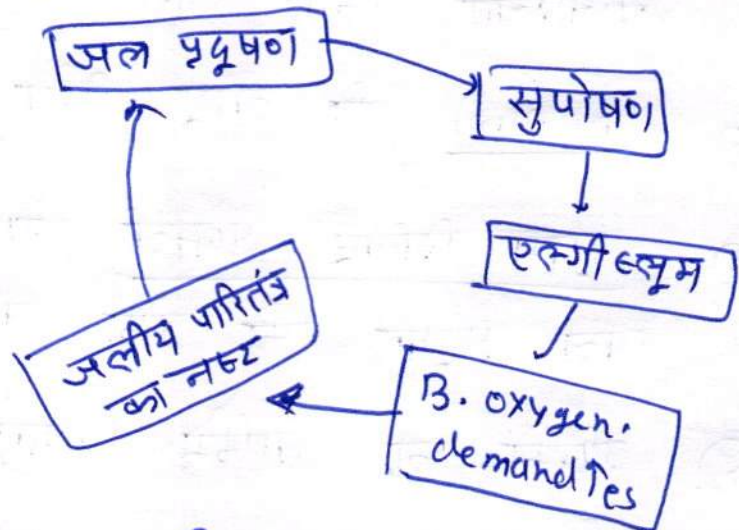 जल प्रदूषण
सुपोषण
एल्गी ब्लूम
B. oxygen.
demand ↑es
जलीय पारितंत्र
का नष्ट